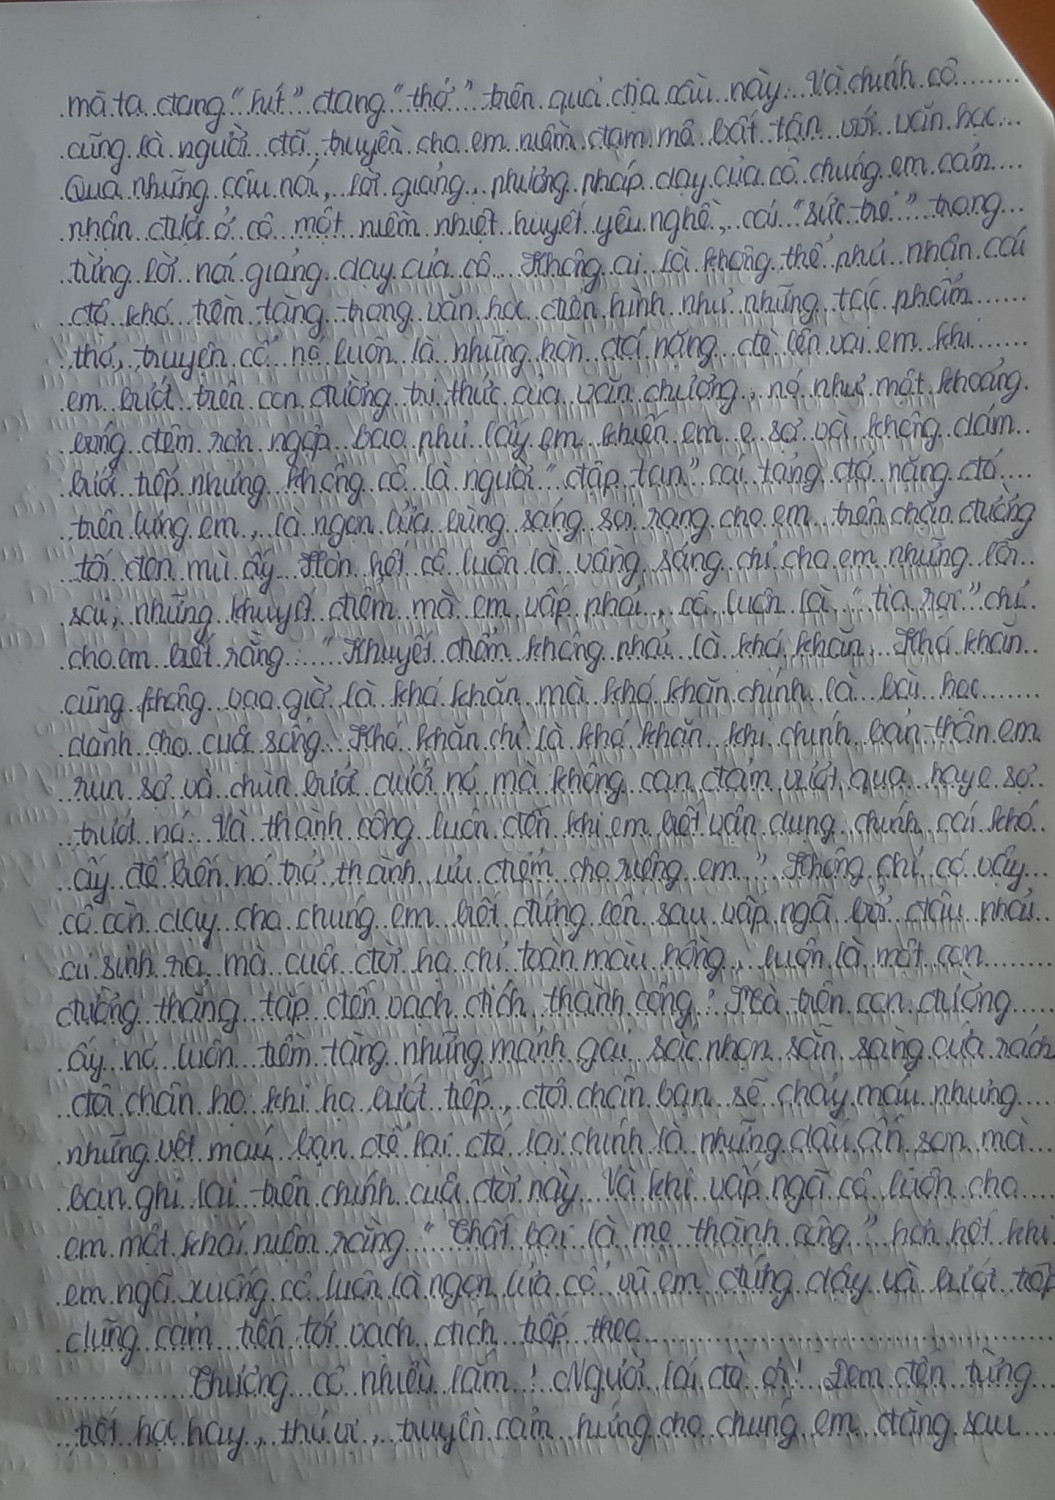 mà ta đang "hít" đang "thở" trên quả địa cầu này. Và chính cô
cũng là người đã truyền cho em niềm đam mê bất tận với văn học
Qua những câu nói, lời giảng, phương pháp dạy của cô chúng em cảm
nhận được ở cô một niềm nhiệt huyết yêu nghề, cái "sức trẻ" trong
từng lời nói giảng dạy của cô. Không ai là không thể phủ nhận cái
độ khó tiềm tàng trong văn học điển hình như những tác phẩm
thơ, truyện cổ nó luôn là những hòn đá nặng đè lên vai em khi
em bước trên con đường tri thức của văn chương, nó như một khoảng
bóng đêm rợn ngợp bao phủ lấy em khiến em e sợ và không dám
bước tiếp nhưng không cô là người "đập tan" cái tảng đá nặng đó
trên lưng em, là ngọn lửa bừng sáng soi rạng cho em trên chặn đường
tối đen mù ấy. Hơn hết cô luôn là vầng sáng chỉ cho em những lỗi
sai, những khuyết điểm mà em vấp phải, cô luôn là "tia rọi" chỉ
cho em biết rằng: "Khuyết điểm không phải là khó khăn, Khó khăn
cũng không bao giờ là khó khăn mà khó khăn chính là bài học
dành cho cuộc sống. Khó khăn chỉ là khó khăn khi chính bản thân em
run sợ và chùn bước dưới nó mà không can đảm vượt qua hay e sợ
trước nó. Và thành công luôn đến khi em biết vận dụng chính cái khó
ấy để biến nó trở thành ưu điểm cho riêng em". Không chỉ có vậy
cô còn dạy cho chúng em biết đứng lên sau vấp ngã bởi đâu phải
cứ sinh ra mà cuộc đời họ chỉ toàn màu hồng, luôn là một con
đường thẳng tắp đến vạch đích thành công! Mà trên con đường
ấy nó luôn tiềm tàng những mảnh gai sắc nhọn sẵn sàng cứa rách
đôi chân họ khi họ bước tiếp, đôi chân bạn sẽ chảy máu nhưng
những vệt máu bạn để lại đó lại chính là những dấu ấn son mà
bạn ghi lại trên chính cuộc đời này. Và khi vấp ngã cô luôn cho
em một khái niệm rằng "Thất bại là mẹ thành công" hơn hết khi
em ngã xuống cô luôn là ngọn lửa cổ vũ em đứng dậy và bước tiếp
dũng cảm tiến tới vạch đích tiếp theo
Thương cô nhiều lắm! Người lái đò ơi! Đem đến từng
tiết học hay, thú vị, truyền cảm hứng cho chúng em, đằng sau